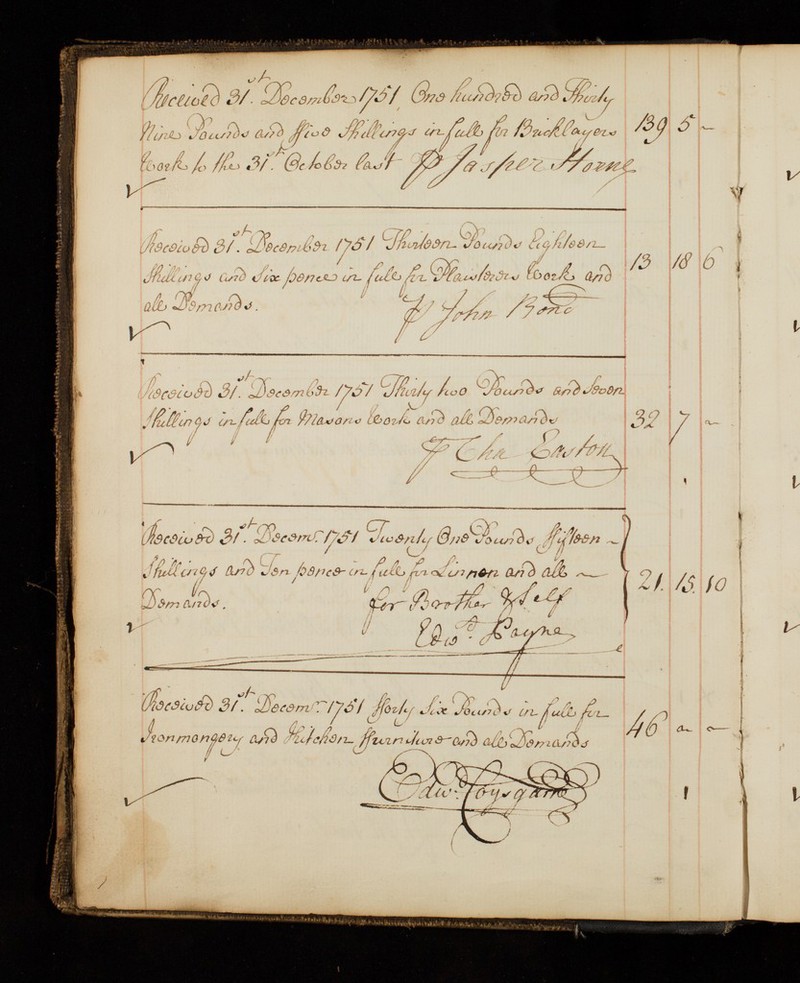 Received 31.st December 1751 One hundred and Thirty
Nine Pounds and ffive Shillings in full for Bricklayers 139 5 ~
Work to the 31.st October last ⅌ Jasper Horne
Received 31.st December 1751 Thirteen Pounds Eighteen
Shillings and Six pence in full for Plaisterers Work and 13 18 6
all Demands. ⅌ John Bond
Received 31.st December 1751 Thirty two Pounds and Seven
Shillings in full for Masons Work and all Demands 32 7 ~
⅌ Cha Easton
Received 31.st Decemr. 1751 Twenty One Pounds ffifteen ~
Shillings and Ten pence in full for Linnen and all ~ 21. 15. 10
Demands. for Brother & Self
Edwd. Payne
Received 31.st Decemr. 1751 fforty Six Pounds in full for
Ironmongery and Kitchen ffurniture and all Demands 46 ~ ~
Edwd. Coysgarne